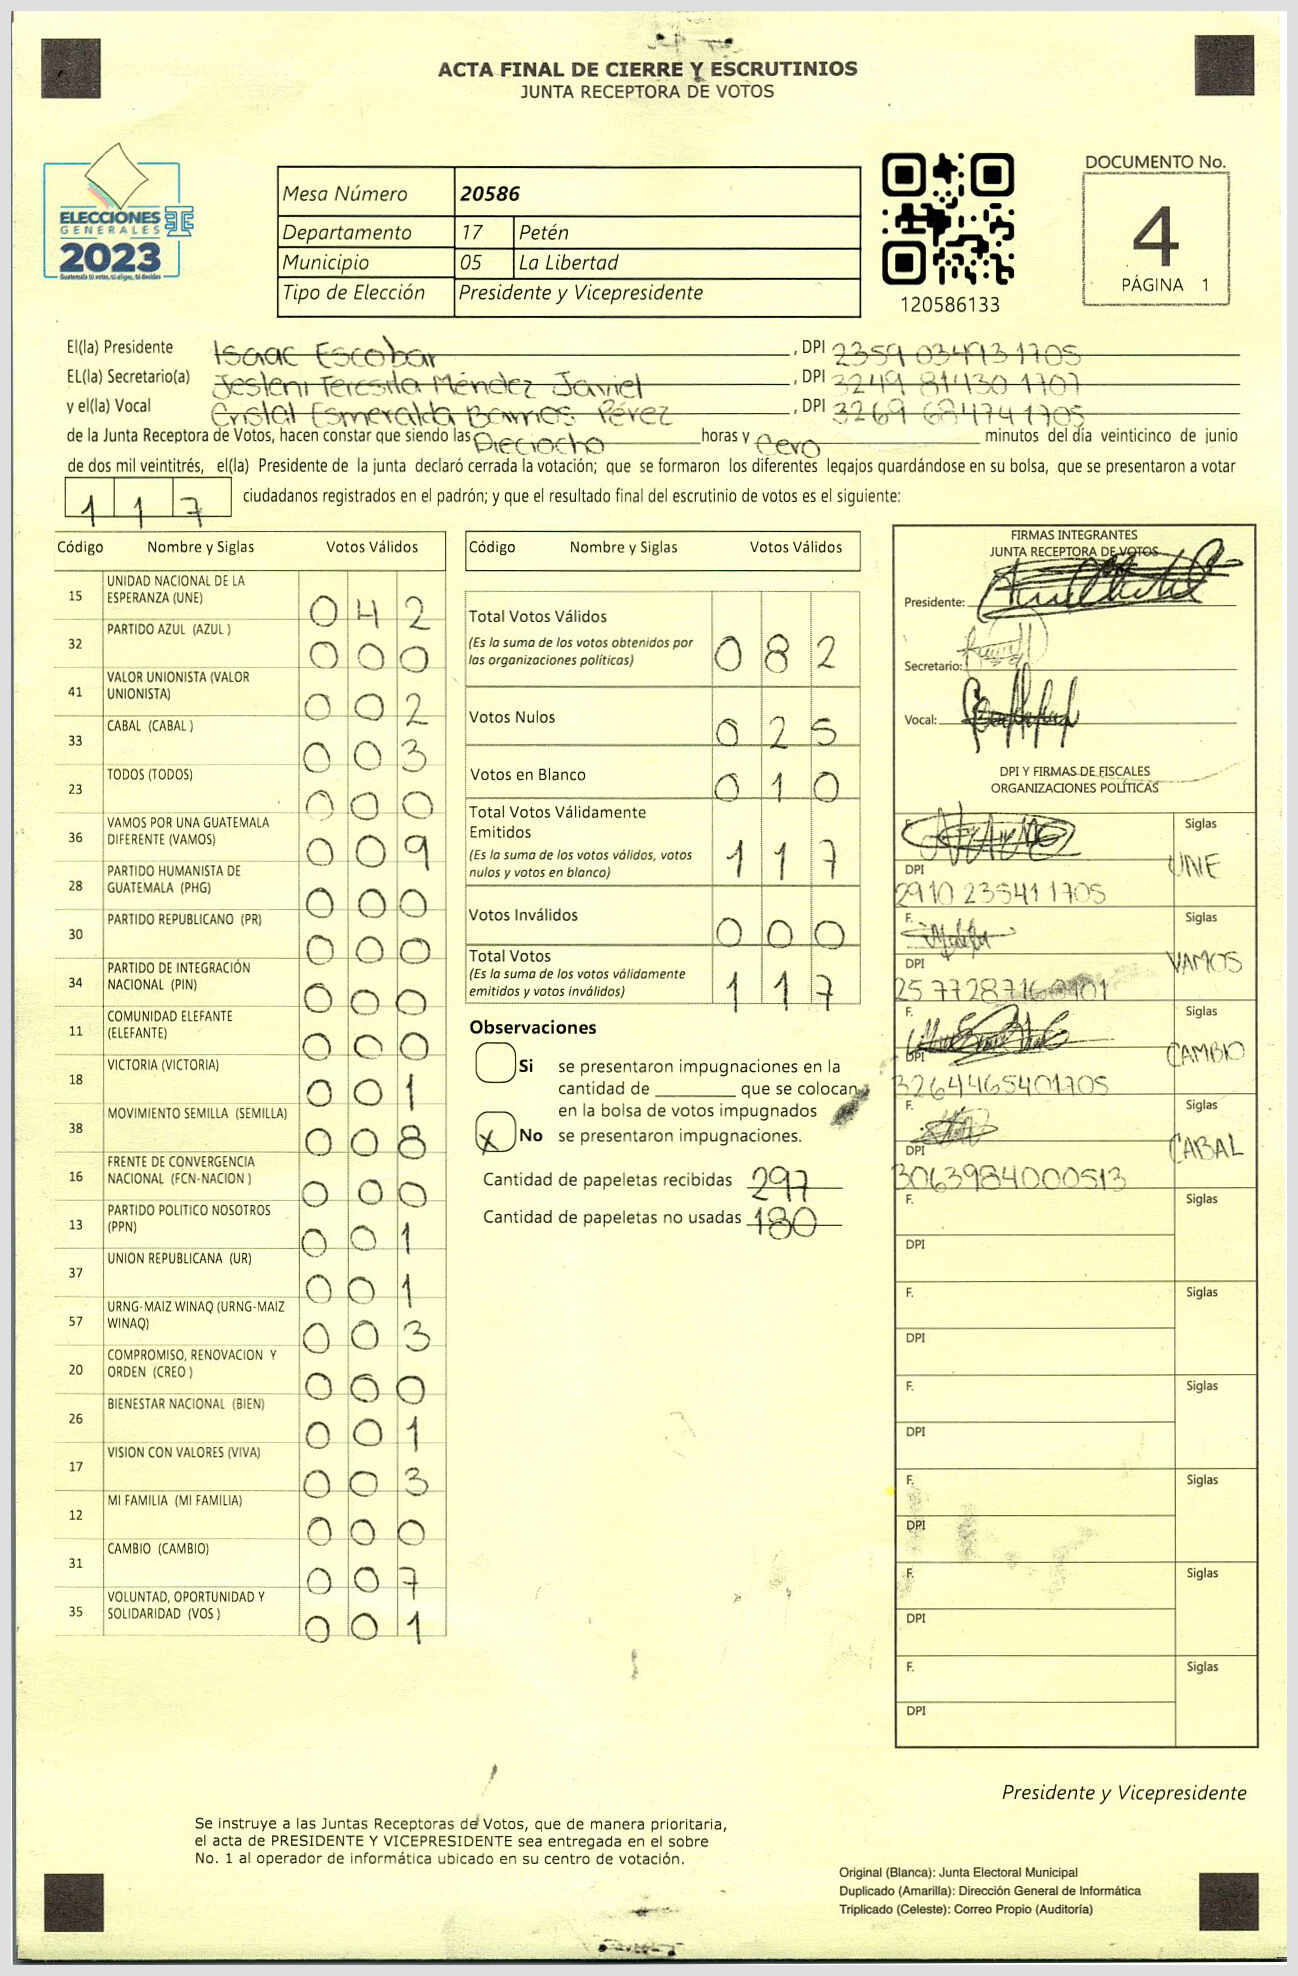 ACTA FINAL DE CIERRE Y ESCRUTINIOS
JUNTA RECEPTORA DE VOTOS
ELECCIONES
GENERALES
2023
Mesa Número 20586
Departamento 17 Petén
Municipio 05 La Libertad
Tipo de Elección Presidente y Vicepresidente
120586133
DOCUMENTO No.
4
PÁGINA 1
El(la) Presidente Isaac Escobar, DPI 2359 03493 1705
EL(la) Secretario(a) Jesleni Teresita Méndez, DPI 3249 81430 1707
y el(la) Vocal Cristal Esmeralda Barrios Pérez, DPI 3269 68474 1705
de la Junta Receptora de Votos, hacen constar que siendo las Dieciocho horas y Cero minutos del día veinticinco de junio
de dos mil veintitrés, el(la) Presidente de la junta declaró cerrada la votación; que se formaron los diferentes legajos guardándose en su bolsa, que se presentaron a votar
1 1 7 ciudadanos registrados en el padrón; y que el resultado final del escrutinio de votos es el siguiente:
Código Nombre y Siglas Votos Válidos
15 UNIDAD NACIONAL DE LA
ESPERANZA (UNE) 0 4 2
32 PARTIDO AZUL (AZUL ) 0 0 0
41 VALOR UNIONISTA (VALOR
UNIONISTA) 0 0 2
33 CABAL (CABAL ) 0 0 3
23 TODOS (TODOS) 0 0 0
36 VAMOS POR UNA GUATEMALA
DIFERENTE (VAMOS) 0 0 9
28 PARTIDO HUMANISTA DE
GUATEMALA (PHG) 0 0 0
30 PARTIDO REPUBLICANO (PR) 0 0 0
34 PARTIDO DE INTEGRACIÓN
NACIONAL (PIN) 0 0 0
11 COMUNIDAD ELEFANTE
(ELEFANTE) 0 0 0
18 VICTORIA (VICTORIA) 0 0 1
38 MOVIMIENTO SEMILLA (SEMILLA) 0 0 8
16 FRENTE DE CONVERGENCIA
NACIONAL (FCN-NACION ) 0 0 0
13 PARTIDO POLITICO NOSOTROS
(PPN) 0 0 1
37 UNION REPUBLICANA (UR) 0 0 1
57 URNG-MAIZ WINAQ (URNG-MAIZ
WINAQ) 0 0 3
20 COMPROMISO, RENOVACION Y
ORDEN (CREO ) 0 0 0
26 BIENESTAR NACIONAL (BIEN) 0 0 1
17 VISION CON VALORES (VIVA) 0 0 3
12 MI FAMILIA (MI FAMILIA) 0 0 0
31 CAMBIO (CAMBIO) 0 0 7
35 VOLUNTAD, OPORTUNIDAD Y
SOLIDARIDAD (VOS ) 0 0 1
Código Nombre y Siglas Votos Válidos
Total Votos Válidos
(Es la suma de los votos obtenidos por
las organizaciones políticas) 0 8 2
Votos Nulos 0 2 5
Votos en Blanco 0 1 0
Total Votos Válidamente
Emitidos
(Es la suma de los votos válidos, votos
nulos y votos en blanco) 1 1 7
Votos Inválidos 0 0 0
Total Votos
(Es la suma de los votos válidamente
emitidos y votos inválidos) 1 1 7
Observaciones
Si se presentaron impugnaciones en la
cantidad de ________ que se colocan
en la bolsa de votos impugnados
X No se presentaron impugnaciones.
Cantidad de papeletas recibidas 297
Cantidad de papeletas no usadas 180
FIRMAS INTEGRANTES
JUNTA RECEPTORA DE VOTOS
Presidente:
Secretario:
Vocal:
DPI Y FIRMAS DE FISCALES
ORGANIZACIONES POLÍTICAS
F. Siglas
UNE
DPI
2910 23541 1705
F. Siglas
VAMOS
DPI
F. Siglas
CAMBIO
DPI
3264465401705
F. Siglas
CABAL
DPI
3063984000513
F. Siglas
DPI
F. Siglas
DPI
F. Siglas
DPI
F. Siglas
DPI
F. Siglas
DPI
F. Siglas
DPI
Presidente y Vicepresidente
Se instruye a las Juntas Receptoras de Votos, que de manera prioritaria,
el acta de PRESIDENTE Y VICEPRESIDENTE sea entregada en el sobre
No. 1 al operador de informática ubicado en su centro de votación.
Original (Blanca): Junta Electoral Municipal
Duplicado (Amarilla): Dirección General de Informática
Triplicado (Celeste): Correo Propio (Auditoría)